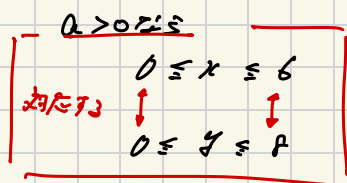 a>0だと
0 ≦ x ≦ 6
対応する
0 ≦ y ≦ 8